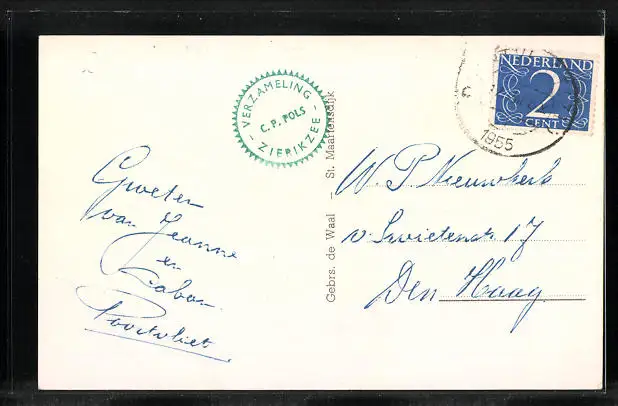 VERZAMELING
C. P. POLS
ZIERIKZEE
NEDERLAND
2
CENT
1955
Groeten
van Jeanne
en
Poortvliet
Gebrs. de Waal – St. Maartensdijk
W. P. Nieuwkerk
v. Swietenstr. 17
Den Haag